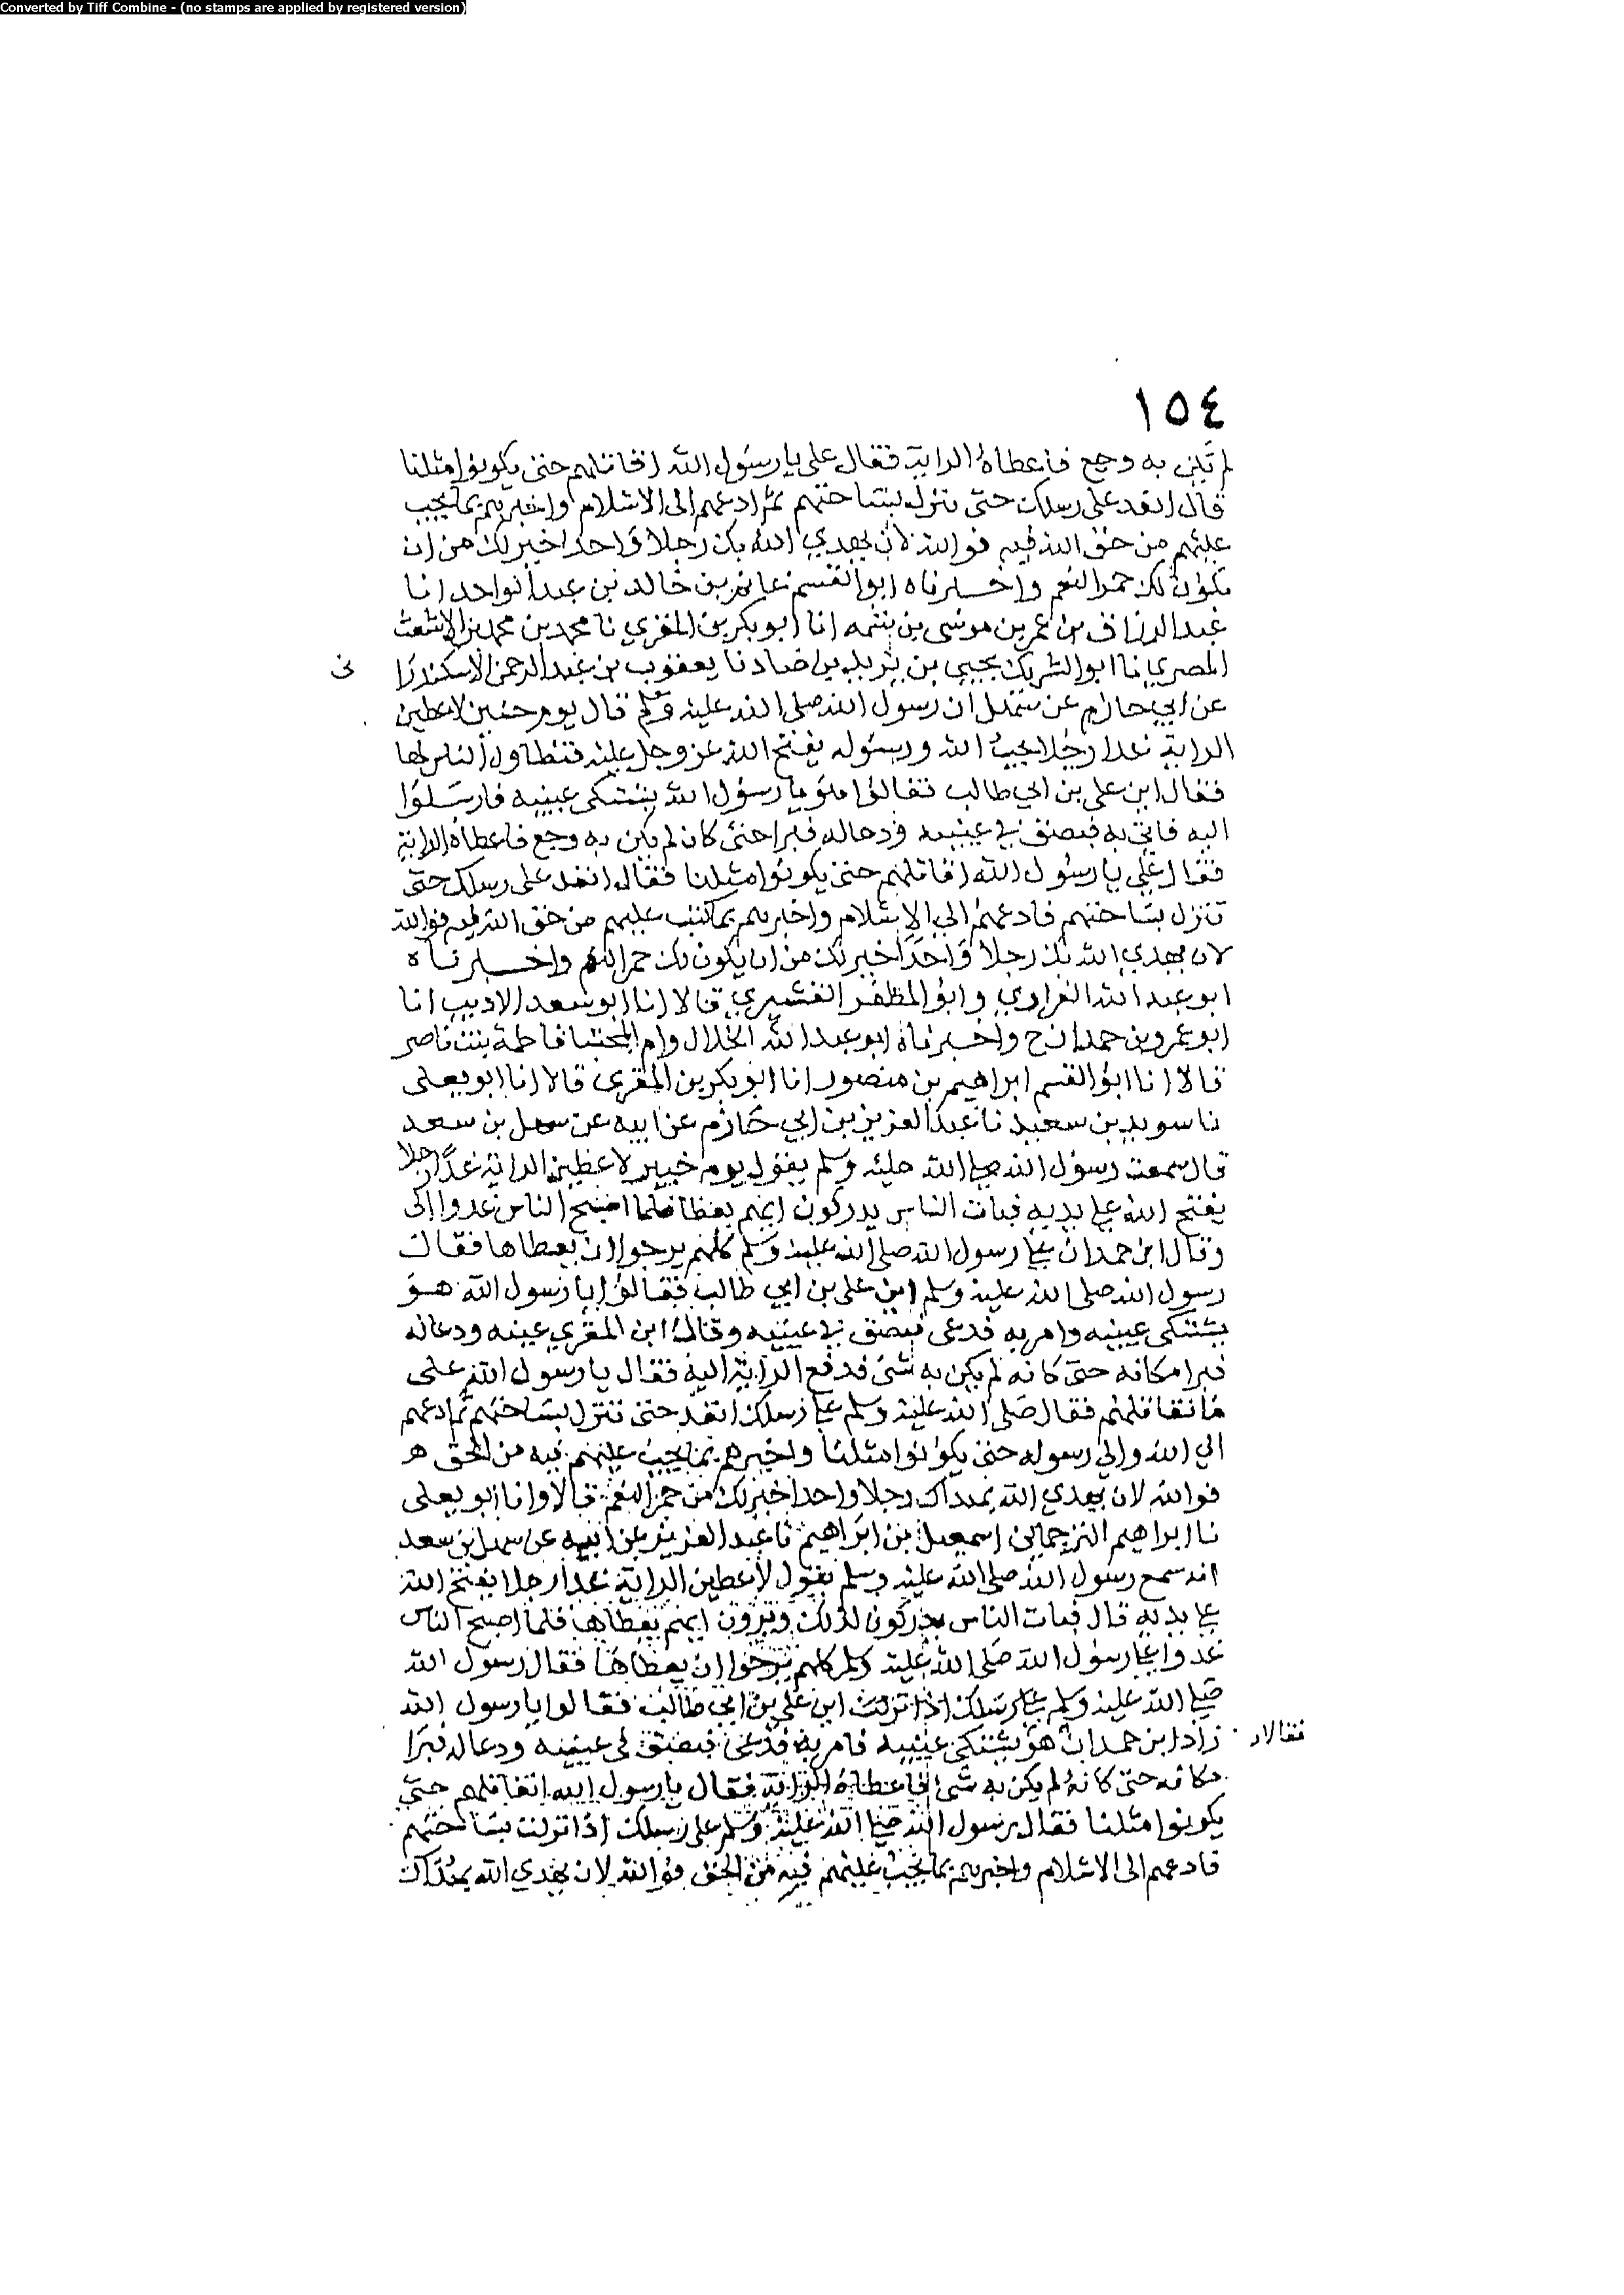 Converted by Tiff Combine - (no stamps are applied by registered version)
١٥٤
لم يكن به وجع فاعطاه الراية فقال علي يا رسول الله اقاتلهم حتى يكونوا مثلنا
قال انفذ على رسلك حتى تنزل بساحتهم ثم ادعهم الى الاسلام واخبرهم بما يجب
عليهم من حق الله فيه فوالله لان يهدي الله بك رجلا واحدا خير لك من ان
تكون لك حمر النعم واخبرناه ابو القسم غانم بن خالد بن عبد الواحد انا
عبد الرزاق بن عمر بن موسى بن شمه انا ابو بكر بن المقري نا محمد بن محمد بن الاشعث
المصري نا ابو الشريك يحيى بن يزيد بن ضماد نا يعقوب بن عبد الرحمن الاسكندرا
نى
عن ابي حازم عن سهل ان رسول الله صلى الله عليه وسلم قال يوم حنين لاعطين
الراية غدا رجلا يحب الله ورسوله يفتح الله عز وجل عليه فتطاول الناس لها
فقال اين علي بن ابي طالب فقالوا هو يا رسول الله يشتكي عينيه فارسلوا
اليه فاتي به فبصق في عينيه ودعا له فبرا حتى كان لم يكن به وجع فاعطاه الراية
فقال علي يا رسول الله اقاتلهم حتى يكونوا مثلنا فقال انفذ على رسلك حتى
تنزل بساحتهم فادعهم الى الاسلام واخبرهم بما يجب عليهم من حق الله فيه فوالله
لان يهدي الله بك رجلا واحدا خير لك من ان يكون لك حمر النعم واخبرناه
ابو عبد الله الفراوي وابو المظفر القشيري قالا انا ابو سعد الاديب انا
ابو عمرو بن حمدان ح واخبرناه ابو عبد الله الخلال وام المجتبا فاطمة بنت ناصر
قالا انا ابو القسم ابراهيم بن منصور انا ابو بكر بن المقرى قالا انا ابو يعلى
نا سويد بن سعيد نا عبد العزيز بن ابي حازم عن ابيه عن سهل بن سعد
قال سمعت رسول الله صلى الله عليه وسلم يقول يوم خيبر لاعطين الراية غدا رجلا
يفتح الله على يديه فبات الناس يدركون ايهم يعطا فلما اصبح الناس غدوا الى
وقال ابن حمدان على رسول الله صلى الله عليه وسلم كلهم يرجوا ان يعطاها فقال
رسول الله صلى الله عليه وسلم اين علي بن ابي طالب فقالوا يا رسول الله هو
يشتكى عينيه وامر به فدعى فبصق في عينيه وقال ابن المقري عينه ودعا له
فبرا مكانه حتى كانه لم يكن به شئ فدفع الراية اليه فقال يا رسول الله على
ما نقاتلهم فقال صلى الله عليه وسلم على رسلك انفذ حتى تنزل بساحتهم ثم ادعهم
الى الله والى رسوله حتى يكونوا مثلنا واخبرهم بما يجب عليهم فيه من الحق
فوالله لان يهدي الله بهداك رجلا واحدا خير لك من حمر النعم قالا وانا ابو يعلى
نا ابراهيم الترجماني اسمعيل بن ابراهيم نا عبد العزيز عن ابيه عن سهل بن سعد
انه سمع رسول الله صلى الله عليه وسلم يقول لاعطين الراية غدا رجلا يفتح الله
على يديه قال فبات الناس يدركون لذلك ويرون ايهم يعطاها فلما اصبح الناس
غدوا على رسول الله صلى الله عليه وسلم كلهم يرجوا ان يعطاها فقال رسول الله
صلى الله عليه وسلم على رسلك اذا نزلت اين علي بن ابي طالب فقالوا يا رسول الله
زاد ابن حمدان هو يشتكي عينيه فامر به فدعى فبصق في عينيه ودعا له فبرا
فقالا
مكانه حتى كانه لم يكن به شئ فاعطاه الراية فقال يا رسول الله انقاتلهم حتى
يكونوا مثلنا فقال رسول الله صلى الله عليه وسلم على رسلك اذا نزلت بساحتهم
فادعهم الى الاسلام واخبرهم بما يجب عليهم فيه من الحق فوالله لان يهدي الله بهداك